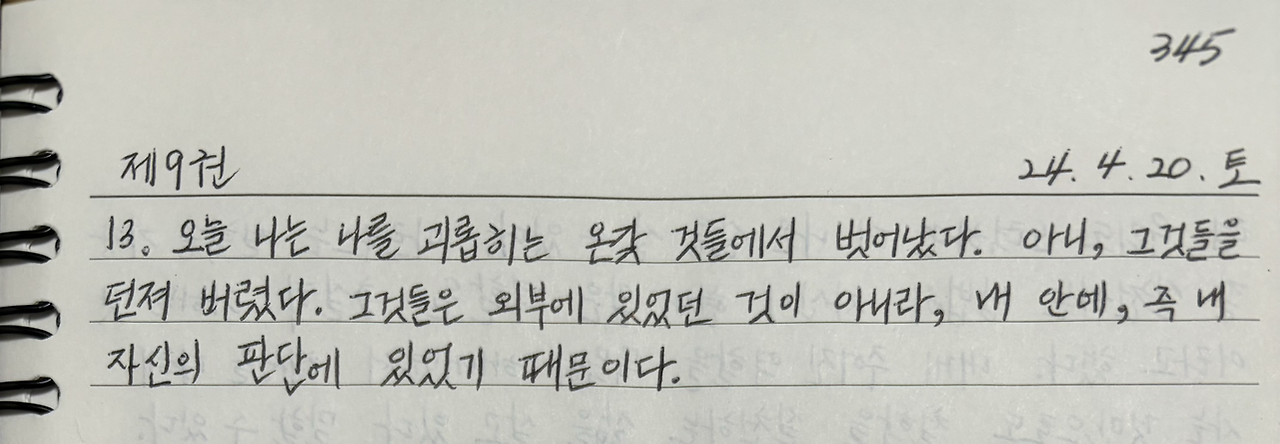 345
제9권 24. 4. 20. 토
13. 오늘 나는 나를 괴롭히는 온갖 것들에서 벗어났다. 아니, 그것들을
던져 버렸다. 그것들은 외부에 있었던 것이 아니라, 내 안에, 즉 내
자신의 판단에 있었기 때문이다.